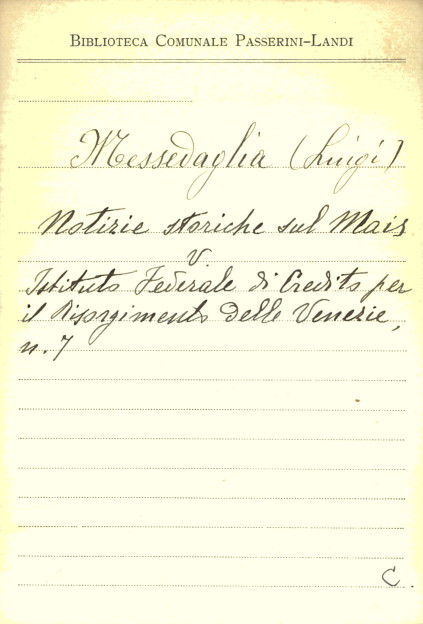 BIBLIOTECA COMUNALE PASSERINI-LANDI
Messedaglia (Luigi)
Notizie storiche sul Mais
V.
Istituto Federale di Credito per
il Risorgimento delle Venezie,
n. 7
C.